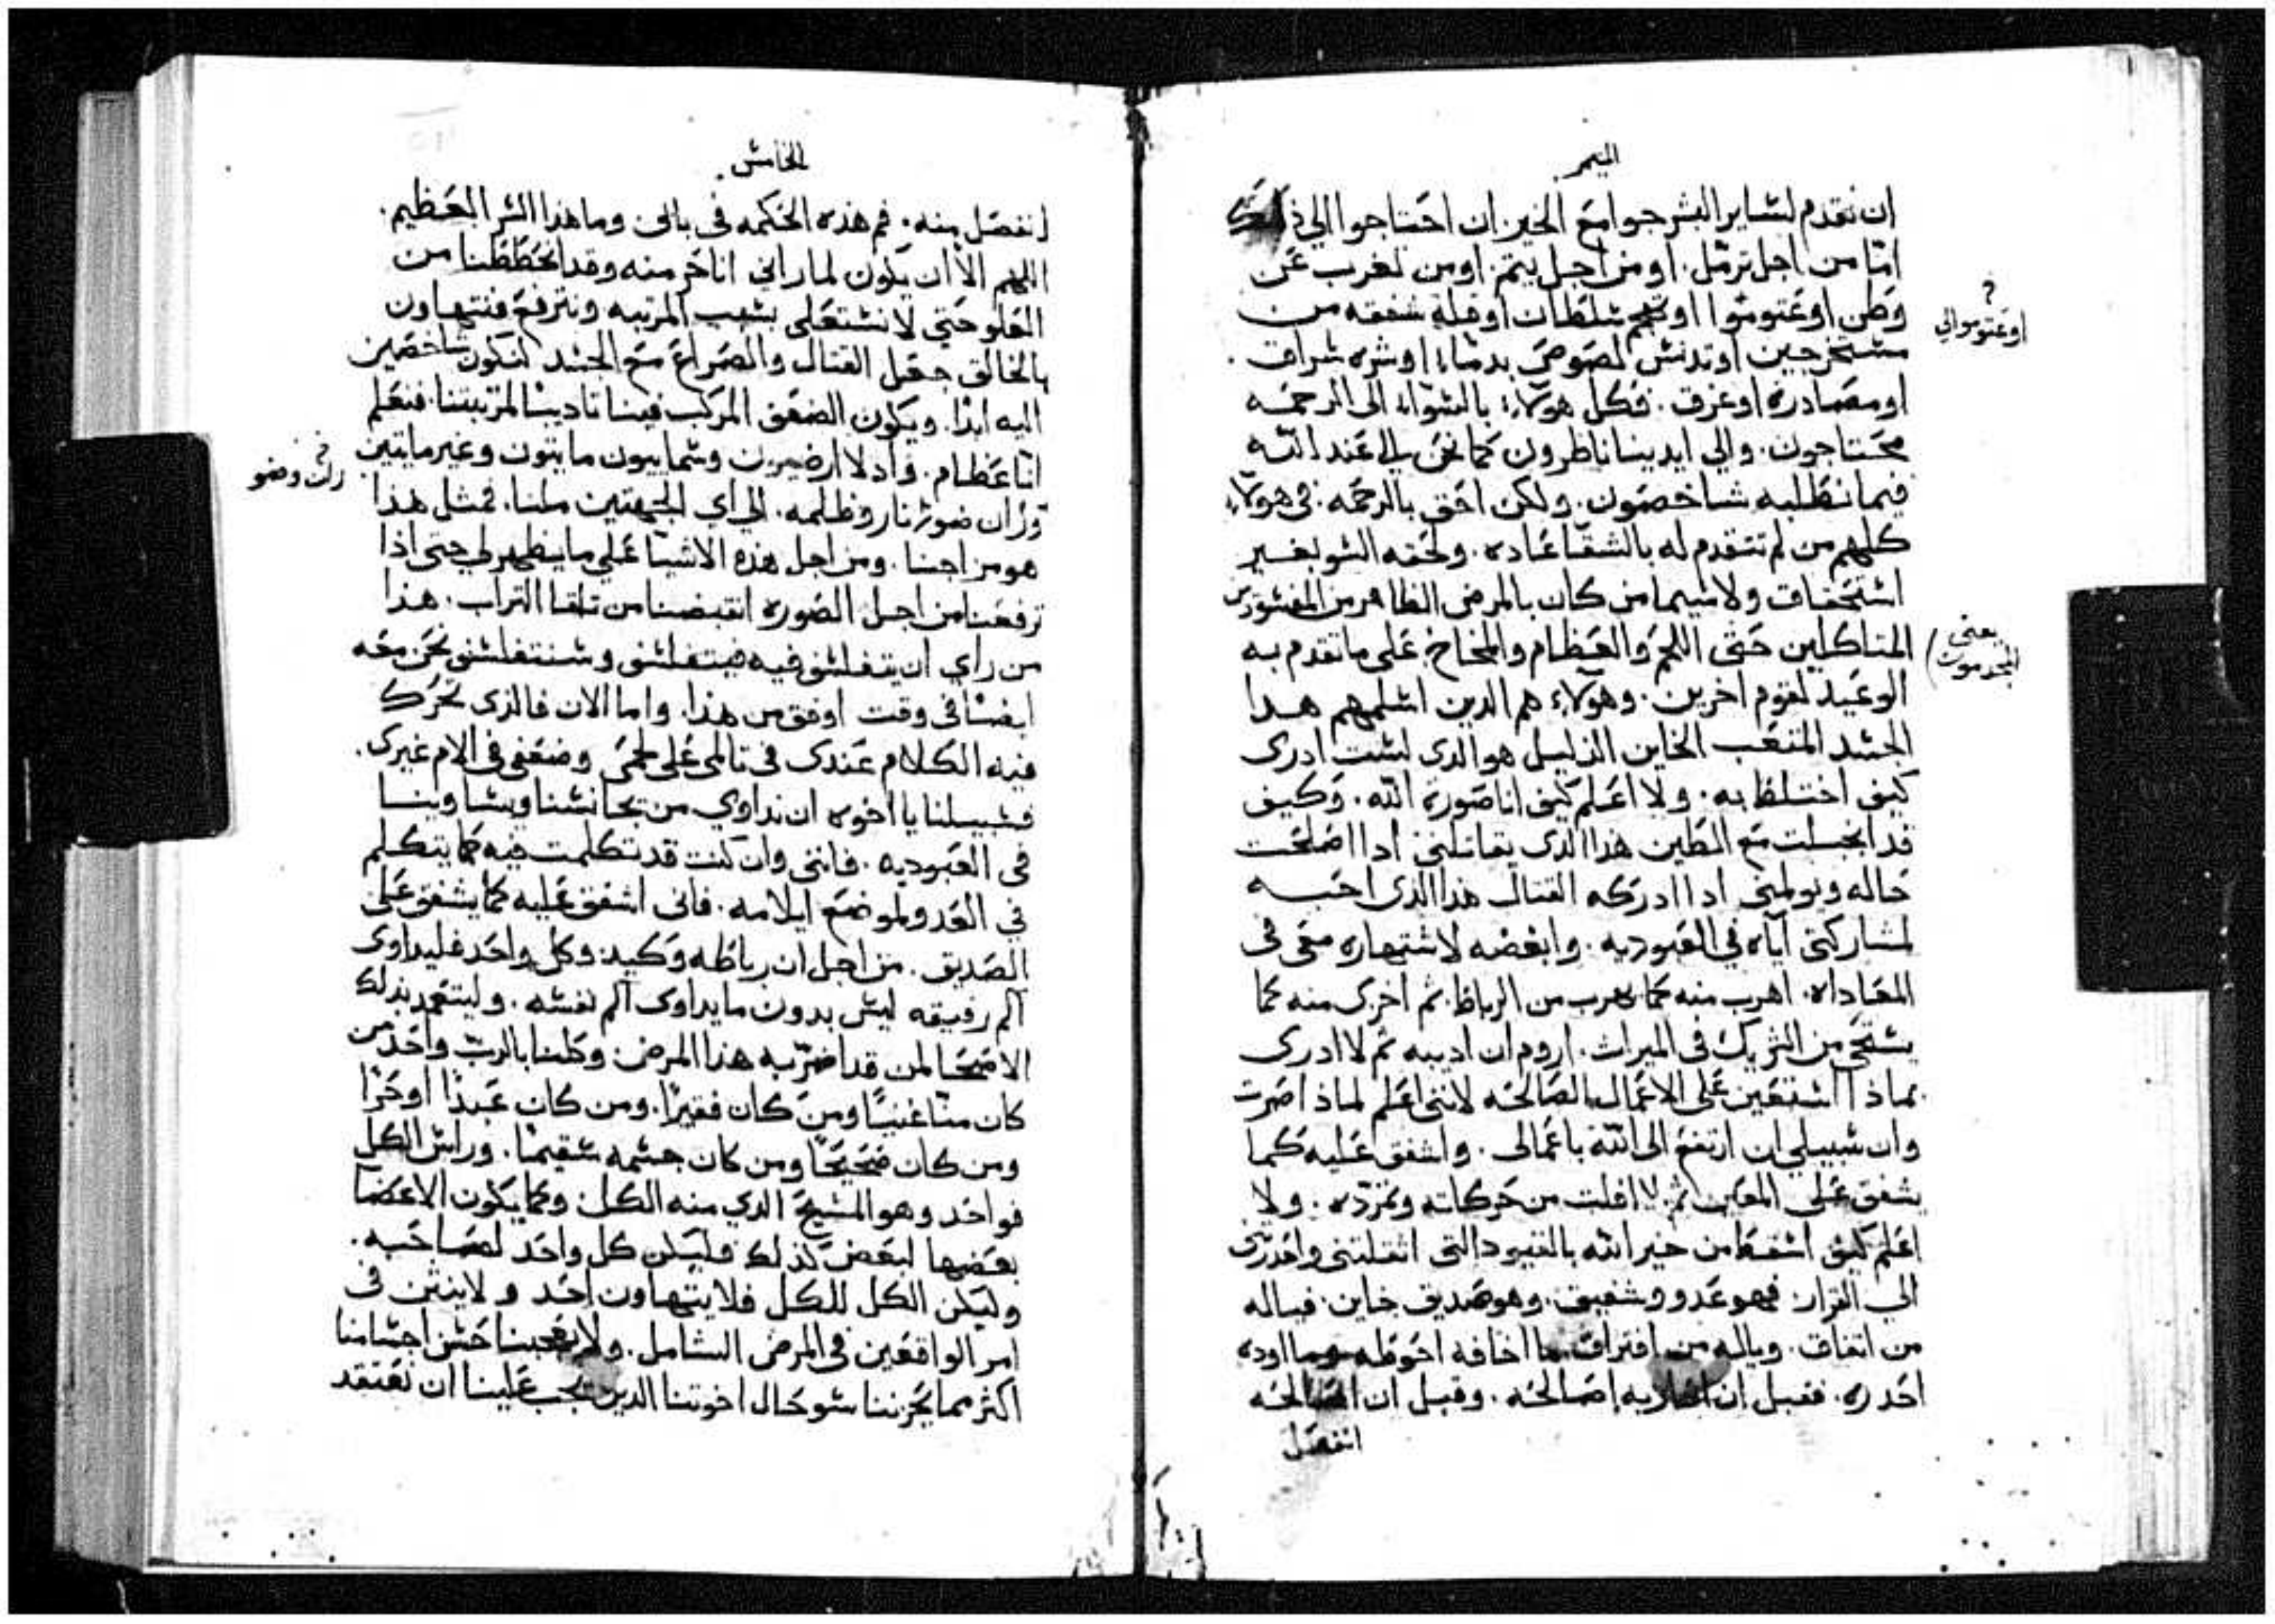 الميمر
ان نقدم لساير البشر جوامع الخير ان احتاجوا الي ذلك
امّا من اجل ترمّل. او من اجل يتم. او من تغرب عن
وطن او عتوموا او تهجم سلطان او قلة شفقه من
مستخرجين او تدنس لصوص بدماء او شره سراق.
او مصادره او غرق. فكل هولاء بالسواء الى الرحمه
محتاجون. والي ايدينا ناظرون كما نحن الي عند الله
فيما نطلبه شاخصون. ولكن احق بالرحمه. في هولاء
كلهم من لم تتقدم له بالشقا عاده. ولحقه السو بغير
استحقاق ولا سيما من كان بالمرض الظاهر من المفسودين
المتاكلين حتى اللحم والعظام والمخاخ. على ما تقدم به
الوعيد لقوم اخرين. وهولاء هم الدين اسلمهم هدا
الجسد المتعب الخاين الذليل هو الدى لست ادرى
كيف اختلط به. ولا اعلم كيف انا صورة الله. وكيف
قد انجبلت مع الطين هدا الدى يقاتلني ادا اصلحت
حاله ويولمني ادا ادركه القتال هدا الذى احبه
لمشاركتى اياه في العبوديه. وابغضه لاشتهاره معى فى
المعاداه. اهرب منه كما يهرب من الرباط. ثم اخزى منه كما
يستحى من الشريك فى الميراث. اروم ان اديبه ثم لا ادرى
بماذا استعين على الاعمال الصالحه لانني اعلم لماذا صرت
وان سبيلي ان ارتفع الى الله باعمالى. واشفق عليه كما
يشفق على المعين ثم لا افلت من حركاته وتمرّده. ولا
اعلم كيف اسقط من خير الله بالقيود التى اثقلتنى واحدرتنى
الي القرار. فهو عدو وشفيق. وهو صديق خاين. فياله
من اتفاق. وياله من افتراق ما اخافه احوطه وما اوده
احدره. فقبل ان احاربه اصالحه. وقبل ان اصالحه
انفصل
؟
اوعتوموالي
يعني
المجدمون
الخامس
انفصل منه. فم هذه الحكمه فى بالى وما هذا السر العظيم.
اللهم الا ان يكون لما راني اناخر منه وقد انحططنا من
العلو حتى لا نستعلى بسبب المرتبه ونترفع فنتهاون
بالخالق جعل القتال والصراع مع الجسد لنكون شاخصين
اليه ابدًا. ويكون الضعف المركب فينا تاديبًا لمرتبتنا. فنعلم
انّا عظام. وادلا ارضيون وسماييون مايتون وغير مايتين
ورّان ضوء نار وظلمه. الي اي الجهتين ملنا. فمثل هذا
هو مزاجنا. ومن اجل هذه الاشيا على ما يظهر لي حتى اذا
ترفعنا من اجل الصوره انقبضنا من تلقا التراب. هذا
من راي ان يتفلسف فيه فيتفلسف وسنتفلسف نحن معه
ايضًا فى وقت اوفق من هذا. واما الان فالذى تحرك
فيه الكلام عندى فى تالمى على لحمى وضعفى فى الام غيرى.
فسبيلنا يا اخوه ان نداوي من يجانسنا ويساوينا
فى العبوديه. فانني وان كنت قد تكلمت فيه كما يتكلم
في العدو لموضع ايلامه. فانى اشفق عليه كما يشفق على
الصديق. من اجل ان رباطه وكيد. وكل واحد فليداوى
الم رفيقه ليس بدون ما يداوى الم نفسه. وليتعمد بذلك
الاصحا لمن قد اضرّ به هذا المرض. وكلنا بالربّ واحد من
كان منّا غنيًا ومن كان فقيرًا. ومن كان عبدًا او حرًا
ومن كان صحيحًا ومن كان جسمه سقيمًا. وراس الكل
فواحد وهو المسيح الدي منه الكل. وكما يكون الاعضا
بعضها لبعض كذلك فليكن كل واحد لصاحبه.
وليكن الكل للكل فلا يتهاون احد ولا ينثن فى
امر الواقعين فى المرض الشامل. ولا يعجبنا حسن اجسامنا
اكثر مما يحزننا سو حال اخوتنا الدين يجب علينا ان نعتقد
ران وضو